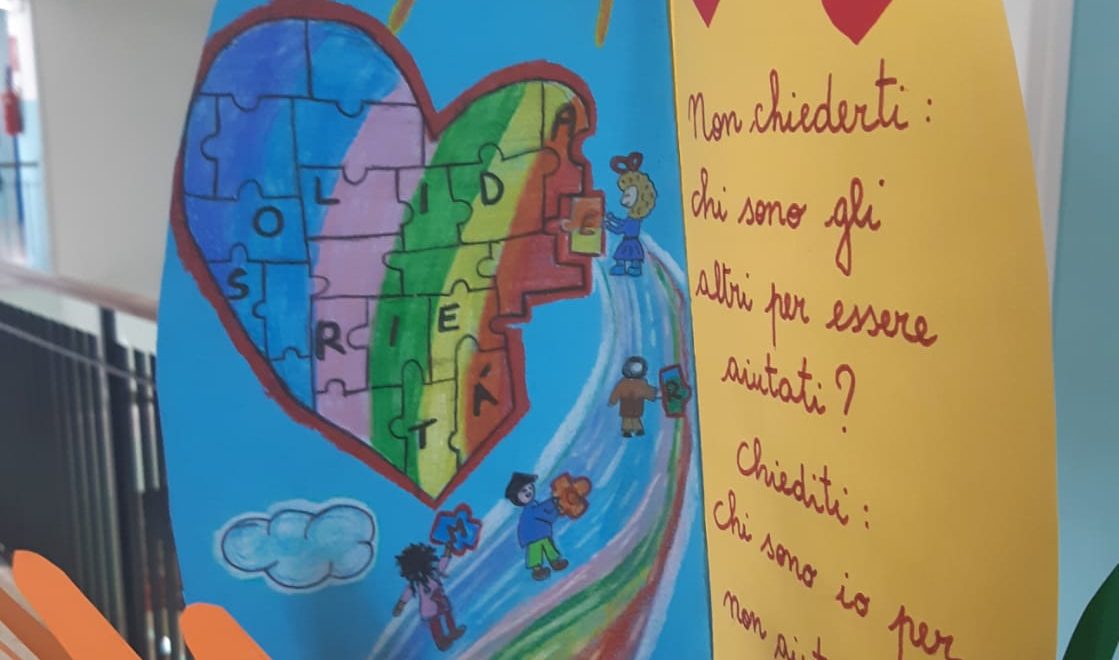 SOLIDA
RIETÁ
E
R
O
M
Non chiederti:
chi sono gli
altri per essere
aiutati?
Chiediti:
chi sono io per
non